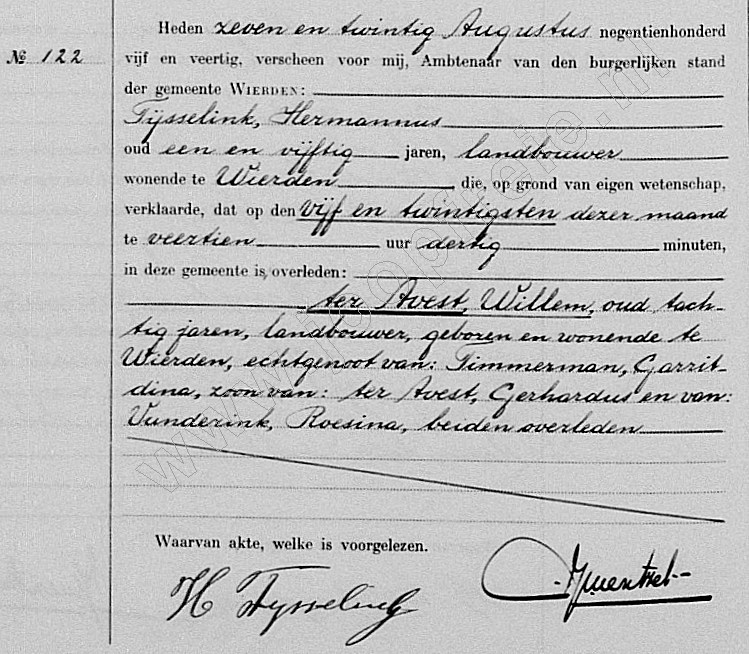 Heden zeven en twintig Augustus negentienhonderd
№ 122 vijf en veertig, verscheen voor mij, Ambtenaar van den burgerlijken stand
der gemeente WIERDEN:
Tijsselink, Hermannus
oud een en vijftig jaren, landbouwer
wonende te Wierden, die, op grond van eigen wetenschap,
verklaarde, dat op den vijf en twintigsten dezer maand
te veertien uur dertig minuten,
in deze gemeente is overleden:
ter Avest, Willem, oud tach-
tig jaren, landbouwer, geboren en wonende te
Wierden, echtgenoot van: Timmerman, Garrit-
dina, zoon van: ter Avest, Gerhardus en van:
Vunderink, Roesina, beiden overleden
Waarvan akte, welke is voorgelezen.
H Tysselink